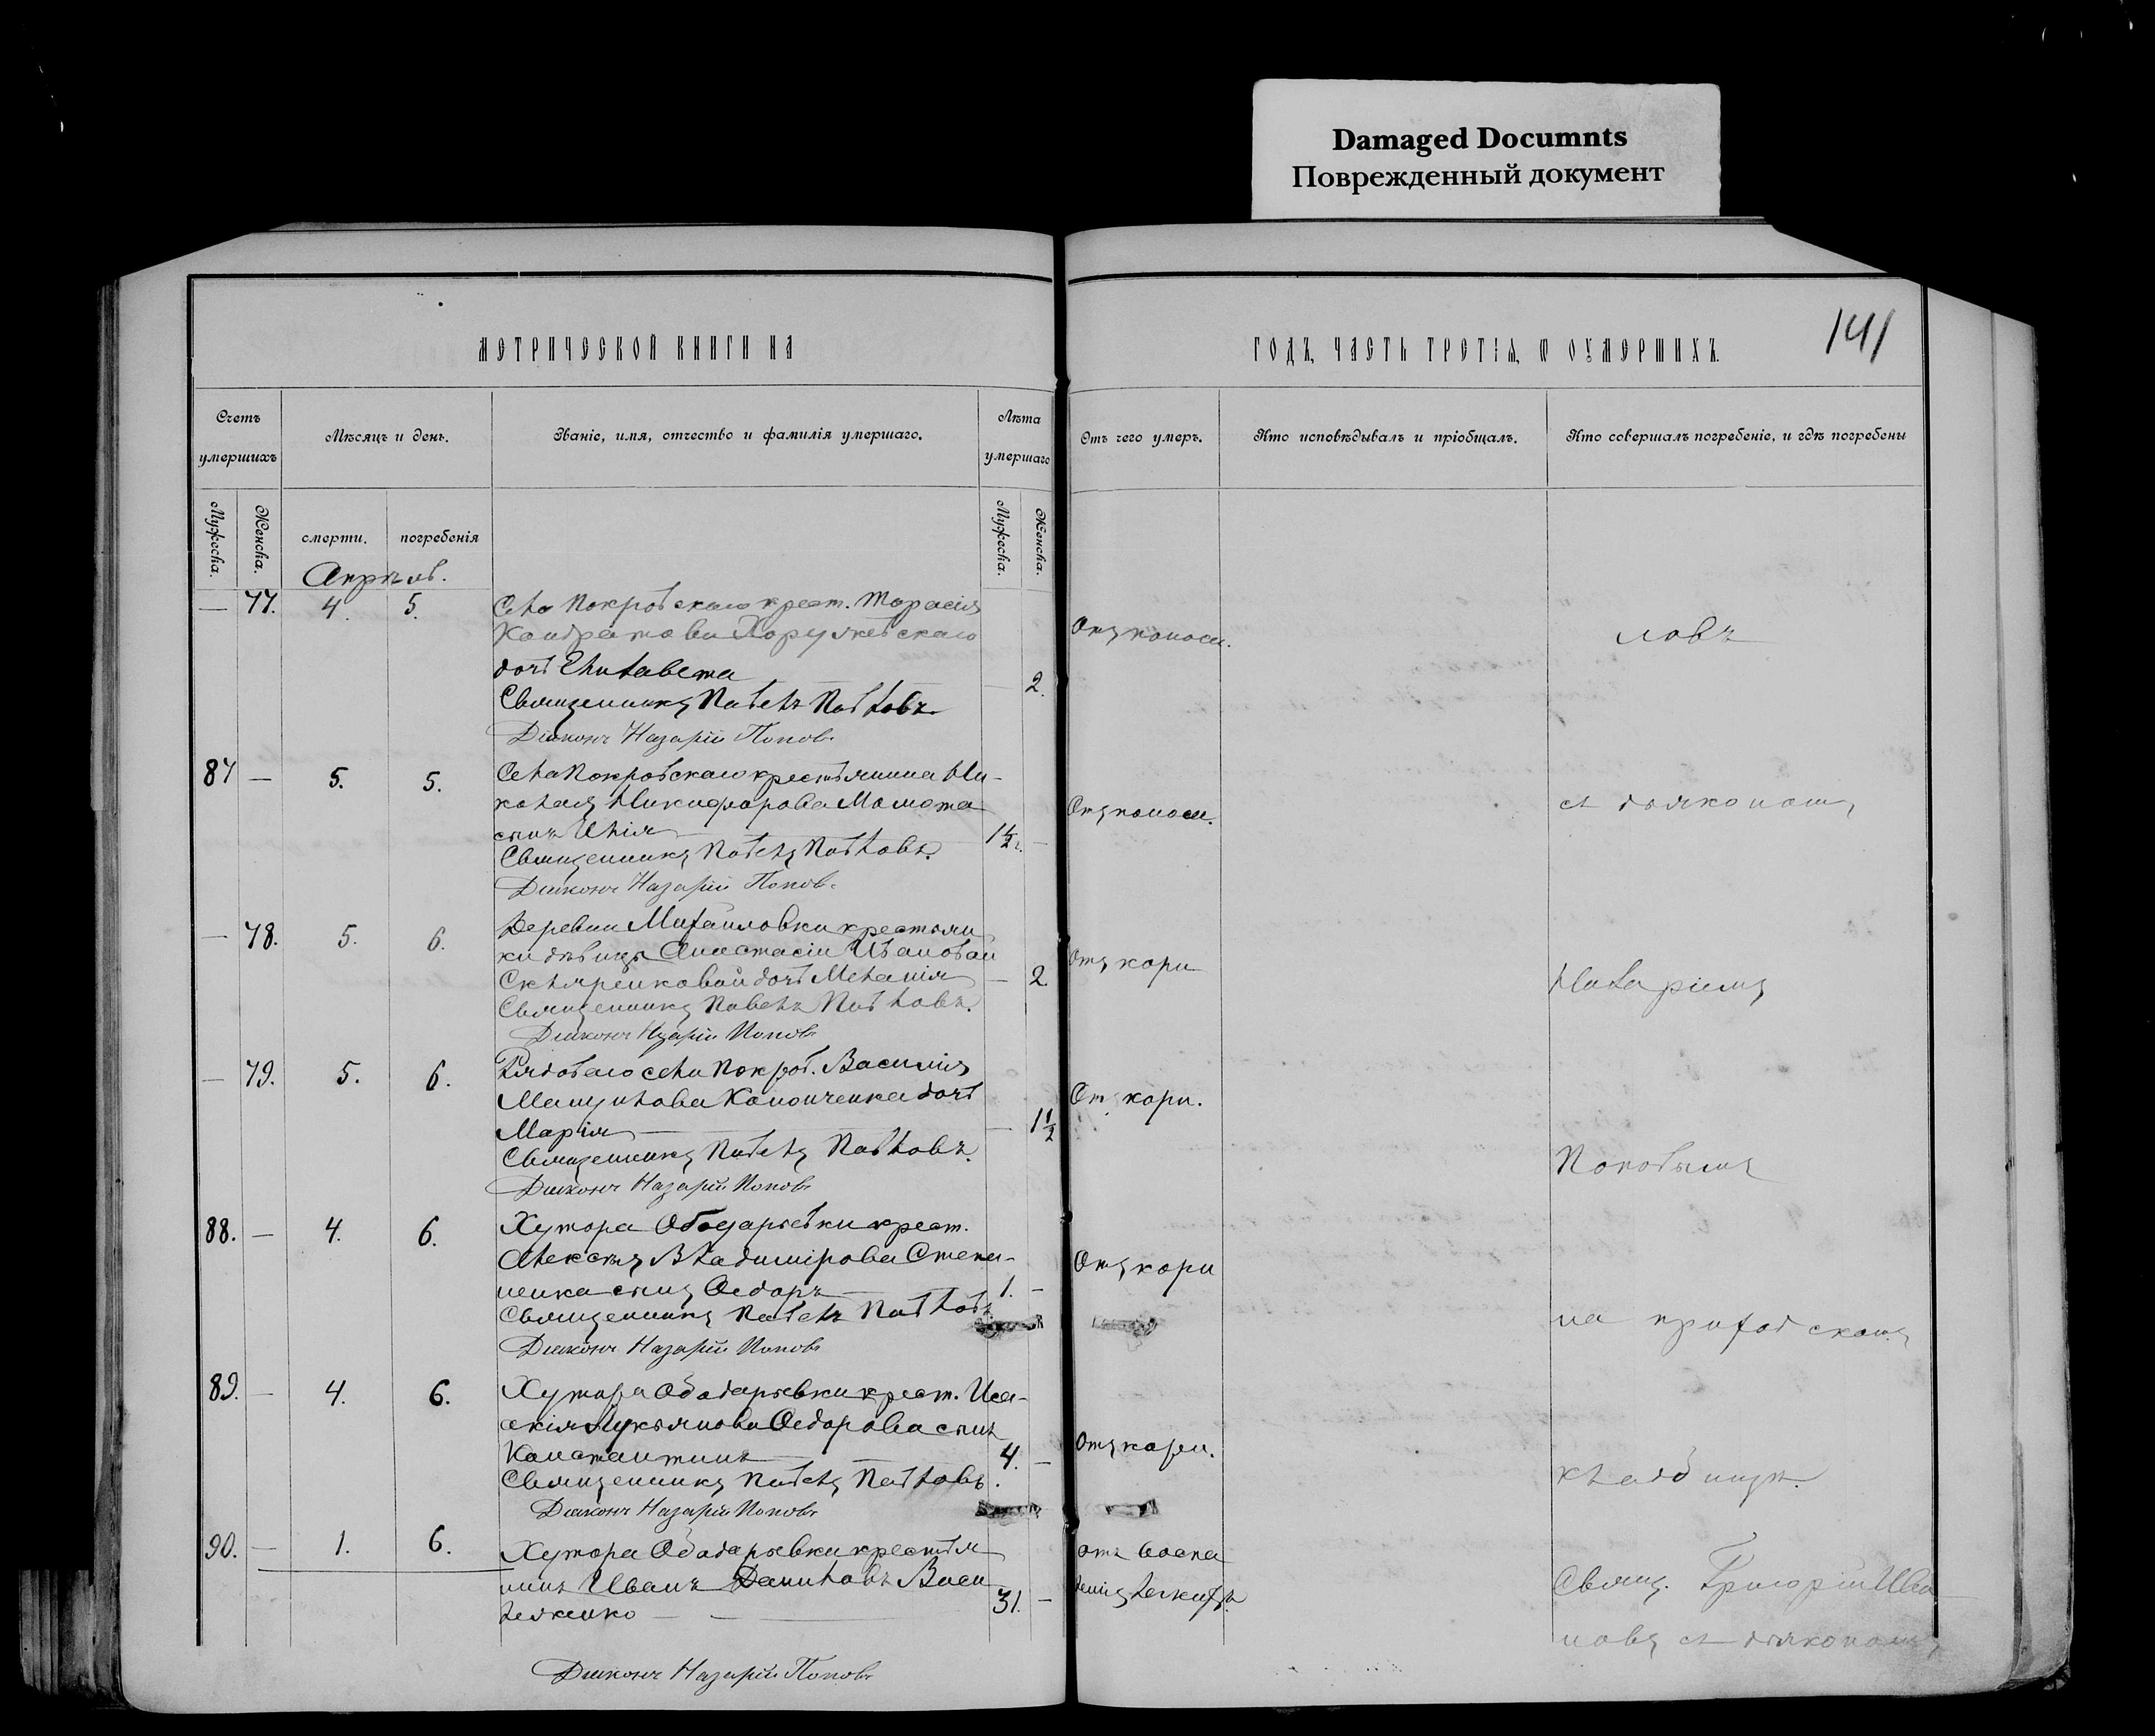 Damaged Documnts
Поврежденный документ
МЕТРИЧЕСКОЙ КНИГИ НА
ГОДЪ, ЧАСТЬ ТРЕТІЯ, Ѿ ОУМЕРШИХЪ.
141
Счетъ умершихъ
Мѣсяцъ и день.
Званіе, имя, отчество и фамилія умершаго.
Лѣта умершаго
Отъ чего умеръ.
Кто исповѣдывалъ и пріобщалъ.
Кто совершалъ погребеніе, и гдѣ погребены
Мужеска.
Женска.
смерти.
погребенія
Мужеска.
Женска.
Апрѣль.
— 77. 4. 5. Села Покровскаго крест. Тарасія
Кондратова Хоружевскаго
дочь Елизавета — 2.
Священникъ Павелъ Павловъ.
Діаконъ Назарій Попов
Отъ поноса.
ловъ
87 — 5. 5. Села Покровскаго крестьянина Ни-
колая Никифорова Момота
сынъ Илія 1½ г. —
Священникъ Павелъ Павловъ.
Діаконъ Назарій Попов
Отъ поноса.
съ діякономъ
— 78. 5. 6. Деревни Михайловки крестьян
ки дѣвицы Анастасіи Ивановой
Скляренковой дочь Меланія — 2.
Священникъ Павелъ Павловъ.
Діаконъ Назарій Попов
Отъ кори
Назаріемъ
— 79. 5. 6. Рядового села Покров. Василія
Мануилова Кононченка дочь
Марія — 1½
Священникъ Павелъ Павловъ.
Діаконъ Назарій Попов
Отъ кори.
Поповымъ
88. — 4. 6. Хутора Ободарьевки крест.
Алексѣя Владимірова Степа-
ненка сынъ Ѳедоръ 1. —
Священникъ Павелъ Павловъ
Діаконъ Назарій Попов
Отъ кори
на приходскомъ
89. — 4. 6. Хутора Ободарьевки крест. Иса-
акія Лукьянова Ѳедорова сынъ
Константинъ 4. —
Священникъ Павелъ Павловъ.
Діаконъ Назарій Попов
Отъ кори.
кладбищѣ.
90. — 1. 6. Хутора Ободарьевки крестья
нинъ Иванъ Даниловъ Васи
ленко — 31. —
отъ воспа
ленія легкихъ.
Свящ. Григорій Ива
новъ съ діякономъ
Діаконъ Назарій Попов